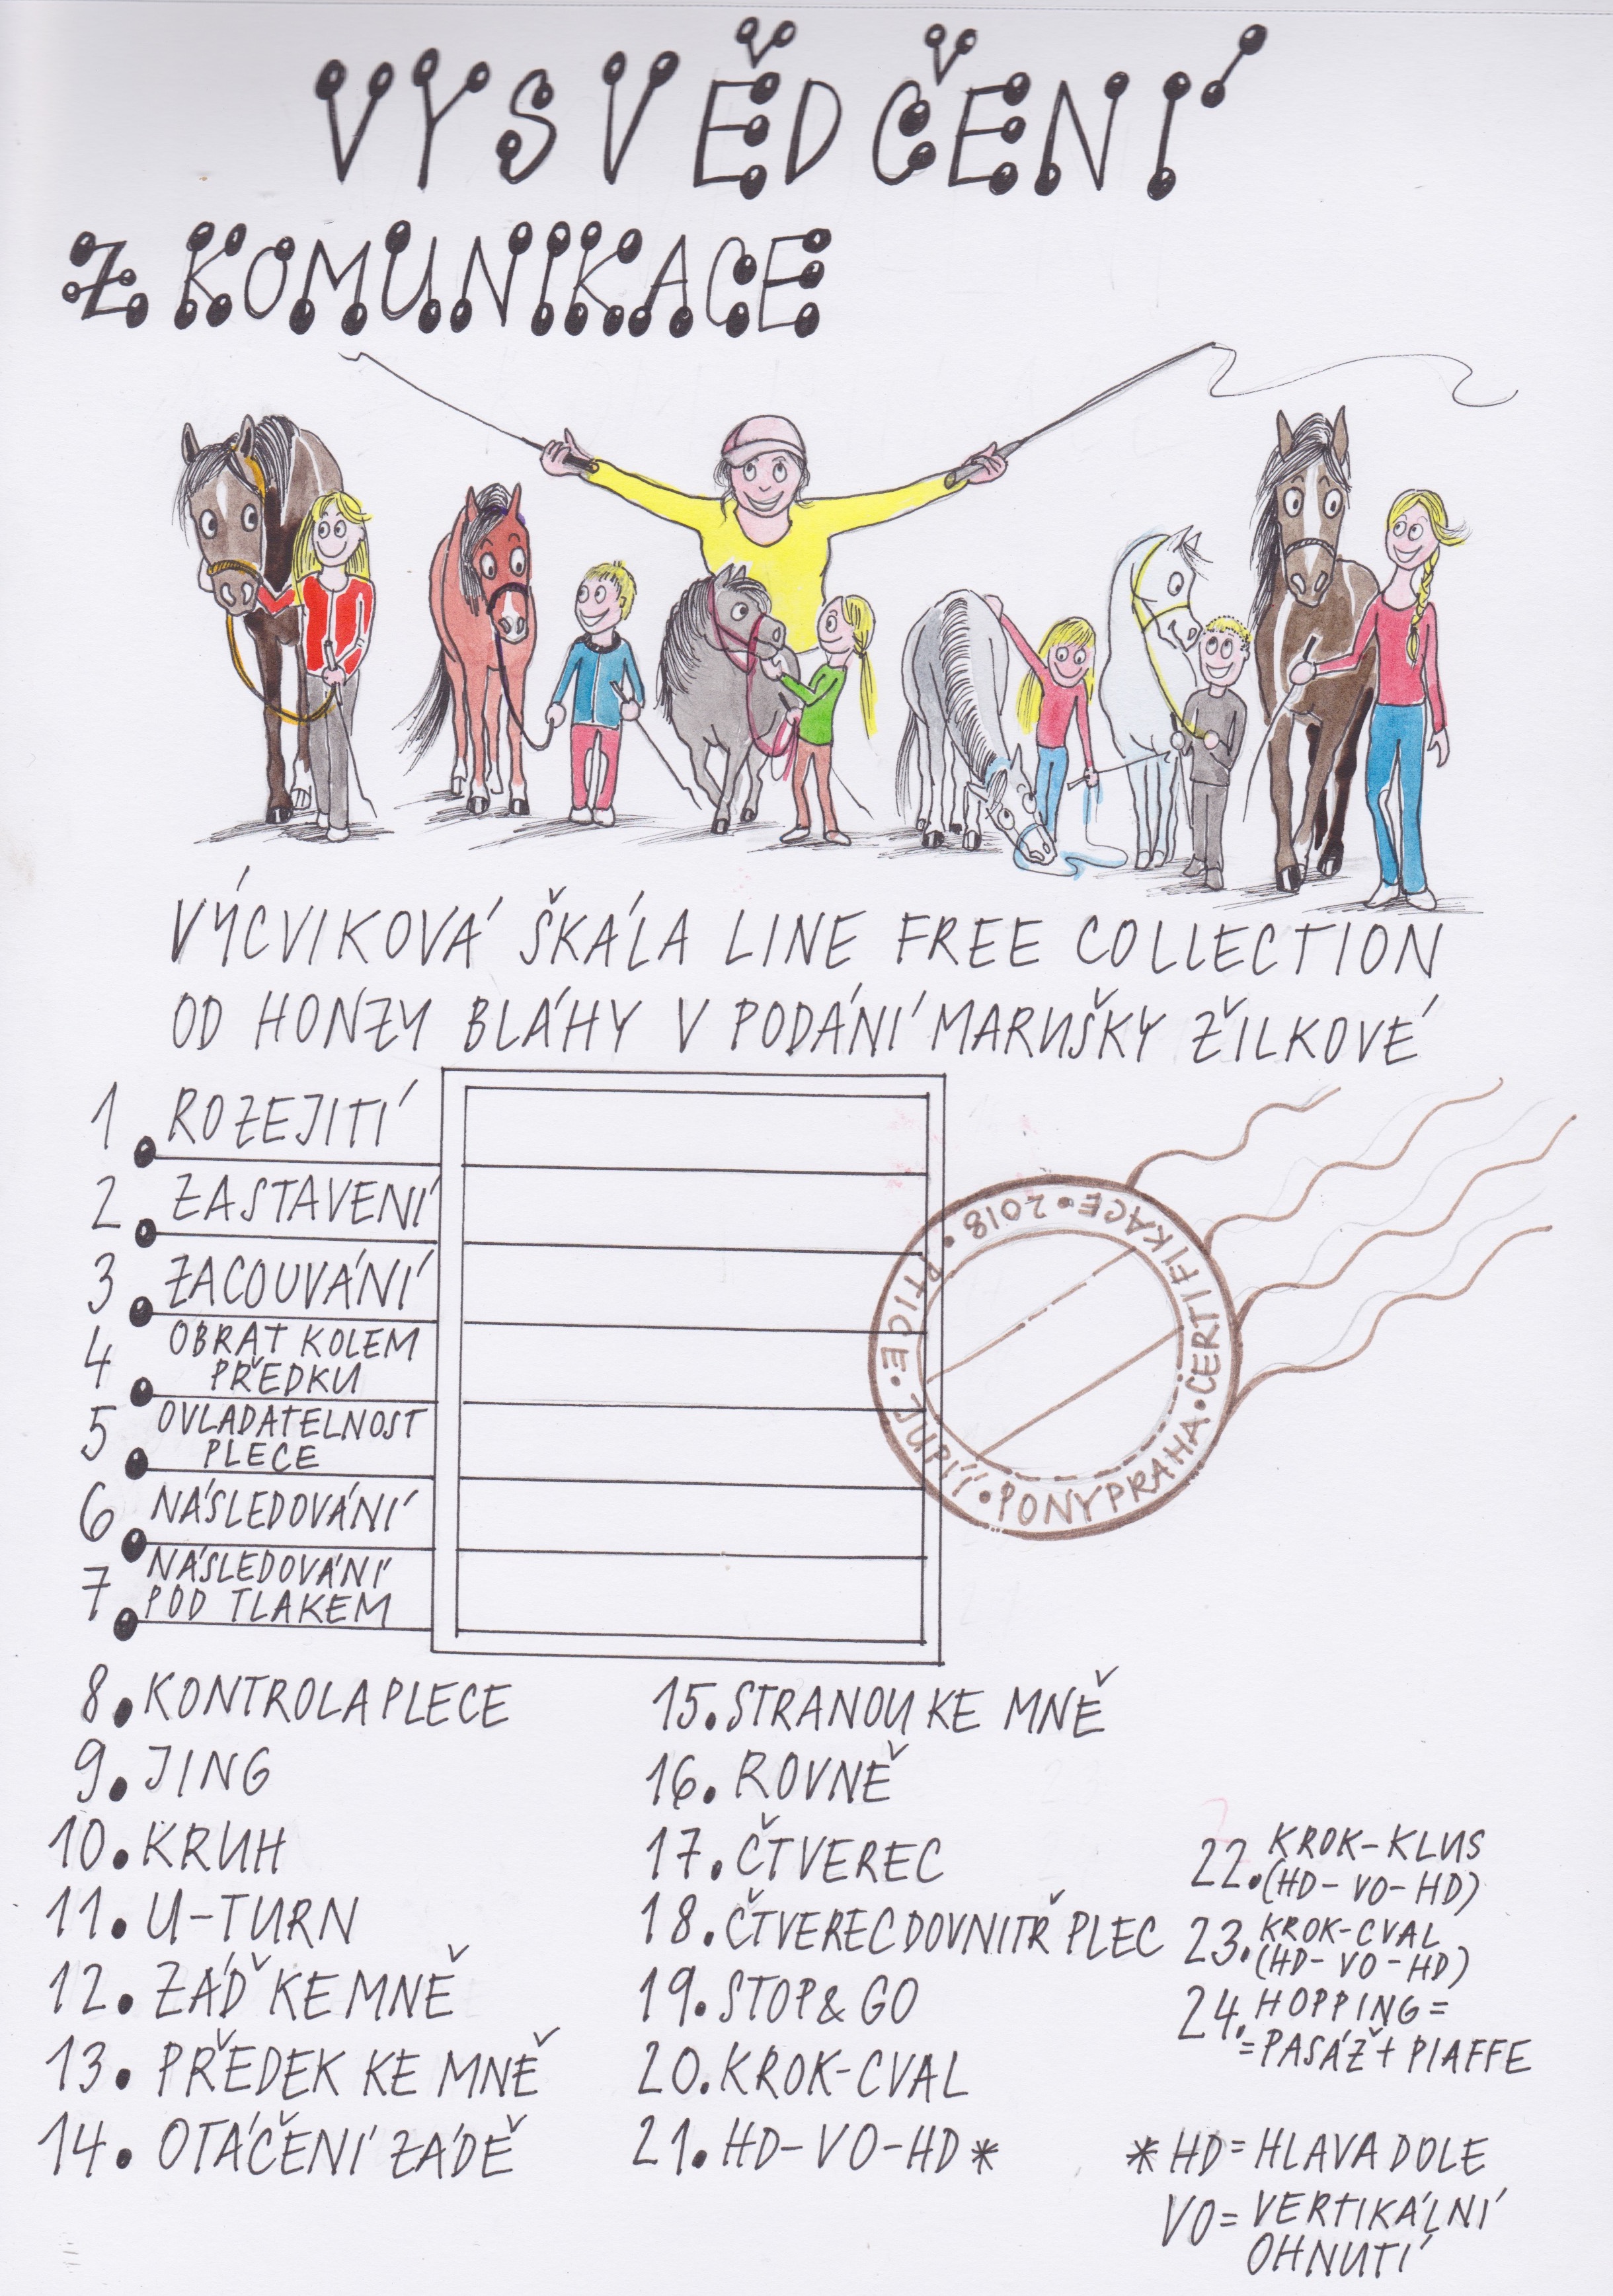 VYSVĚDČENÍ
Z KOMUNIKACE
VÝCVIKOVÁ ŠKÁLA LINE FREE COLLECTION
OD HONZY BLÁHY V PODÁNÍ MARUŠKY ŽILKOVÉ
1. ROZEJITÍ
2. ZASTAVENÍ
3. ZACOUVÁNÍ
4. OBRAT KOLEM
PŘEDKU
5. OVLADATELNOST
PLECE
6. NÁSLEDOVÁNÍ
7. NÁSLEDOVÁNÍ
POD TLAKEM
PTICE • 2018 • CERTIFIKACE • PONYPRAHA •
8. KONTROLA PLECE
9. JING
10. KRUH
11. U-TURN
12. ZÁĎ KE MNĚ
13. PŘEDEK KE MNĚ
14. OTÁČENÍ ZÁDĚ
15. STRANOU KE MNĚ
16. ROVNĚ
17. ČTVEREC
18. ČTVEREC DOVNITŘ PLEC
19. STOP & GO
20. KROK-CVAL
21. HD-VO-HD *
22. KROK-KLUS
(HD-VO-HD)
23. KROK-CVAL
(HD-VO-HD)
24. HOPPING =
= PASÁŽ + PIAFFE
* HD = HLAVA DOLE
VO = VERTIKÁLNÍ
OHNUTÍ